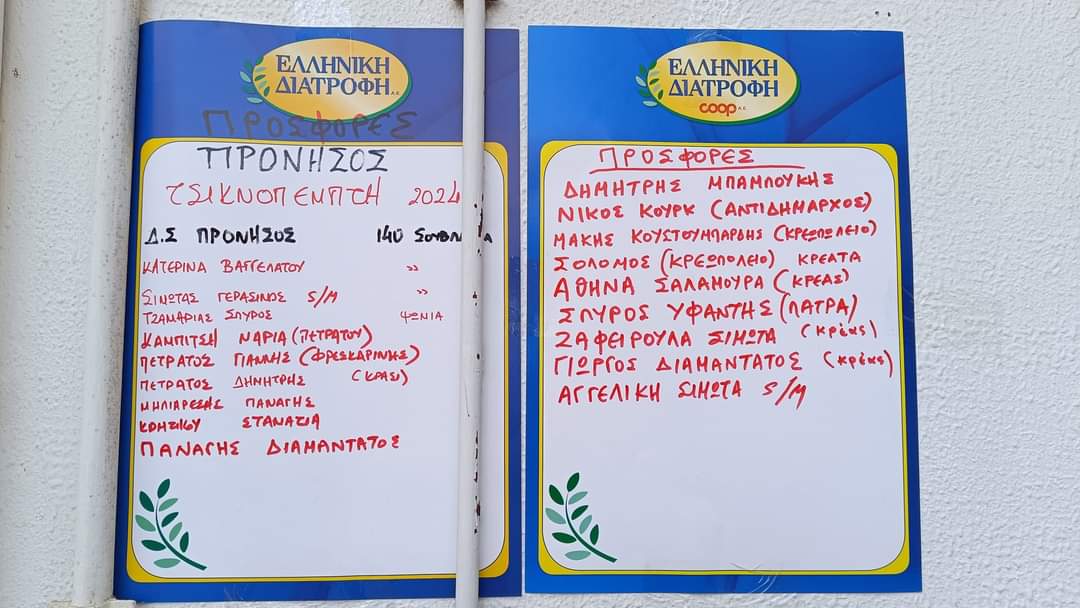 ΕΛΛΗΝΙΚΗ
ΔΙΑΤΡΟΦΗ Α.Ε.
ΠΡΟΣΦΟΡΕΣ
ΠΡΟΝΗΣΟΣ
ΤΣΙΚΝΟΠΕΜΠΤΗ 2024
Δ.Σ ΠΡΟΝΗΣΟΣ 140 ΣΟΥΒΛΑΚΙΑ
ΚΑΤΕΡΙΝΑ ΒΑΓΓΕΛΑΤΟΥ »
ΣΙΝΩΤΑΣ ΓΕΡΑΣΙΝΟΣ S/M »
ΤΖΑΜΑΡΙΑΣ ΣΠΥΡΟΣ ΨΩΝΙΑ
ΚΑΜΠΙΤΣΗ ΝΑΡΙΑ (ΠΕΤΡΑΤΟΥ)
ΠΕΤΡΑΤΟΣ ΓΙΑΝΝΗΣ (ΦΡΕΣΚΑΡΙΝΗΣ)
ΠΕΤΡΑΤΟΣ ΔΗΝΗΤΡΗΣ (ΚΡΑΣΙ)
ΜΗΛΙΑΡΕΣΗΣ ΠΑΝΑΓΗΣ
ΣΤΑΝΑΤΙΑ
ΠΑΝΑΓΗΣ ΔΙΑΜΑΝΤΑΤΟΣ
ΕΛΛΗΝΙΚΗ
ΔΙΑΤΡΟΦΗ
coop Α.Ε.
ΠΡΟΣΦΟΡΕΣ
ΔΗΜΗΤΡΗΣ ΜΠΑΜΠΟΥΚΗΣ
ΝΙΚΟΣ ΚΟΥΡΚ (ΑΝΤΙΔΗΜΑΡΧΟΣ)
ΜΑΚΗΣ ΚΟΥΣΤΟΥΜΠΑΡΔΗΣ (ΚΡΕΩΠΩΛΕΙΟ)
ΣΟΛΟΜΟΣ (ΚΡΕΩΠΟΛΕΙΟ) ΚΡΕΑΤΑ
ΑΘΗΝΑ ΣΑΛΑΜΟΥΡΑ (ΚΡΕΑΣ)
ΣΠΥΡΟΣ ΥΦΑΝΤΗΣ (ΠΑΤΡΑ)
ΖΑΦΕΙΡΟΥΛΑ ΣΙΜΩΤΑ (ΚΡέΑς)
ΓΙΩΡΓΟΣ ΔΙΑΜΑΝΤΑΤΟΣ (ΚΡέΑς)
ΑΓΓΕΛΙΚΗ ΣΙΜΩΤΑ S/M